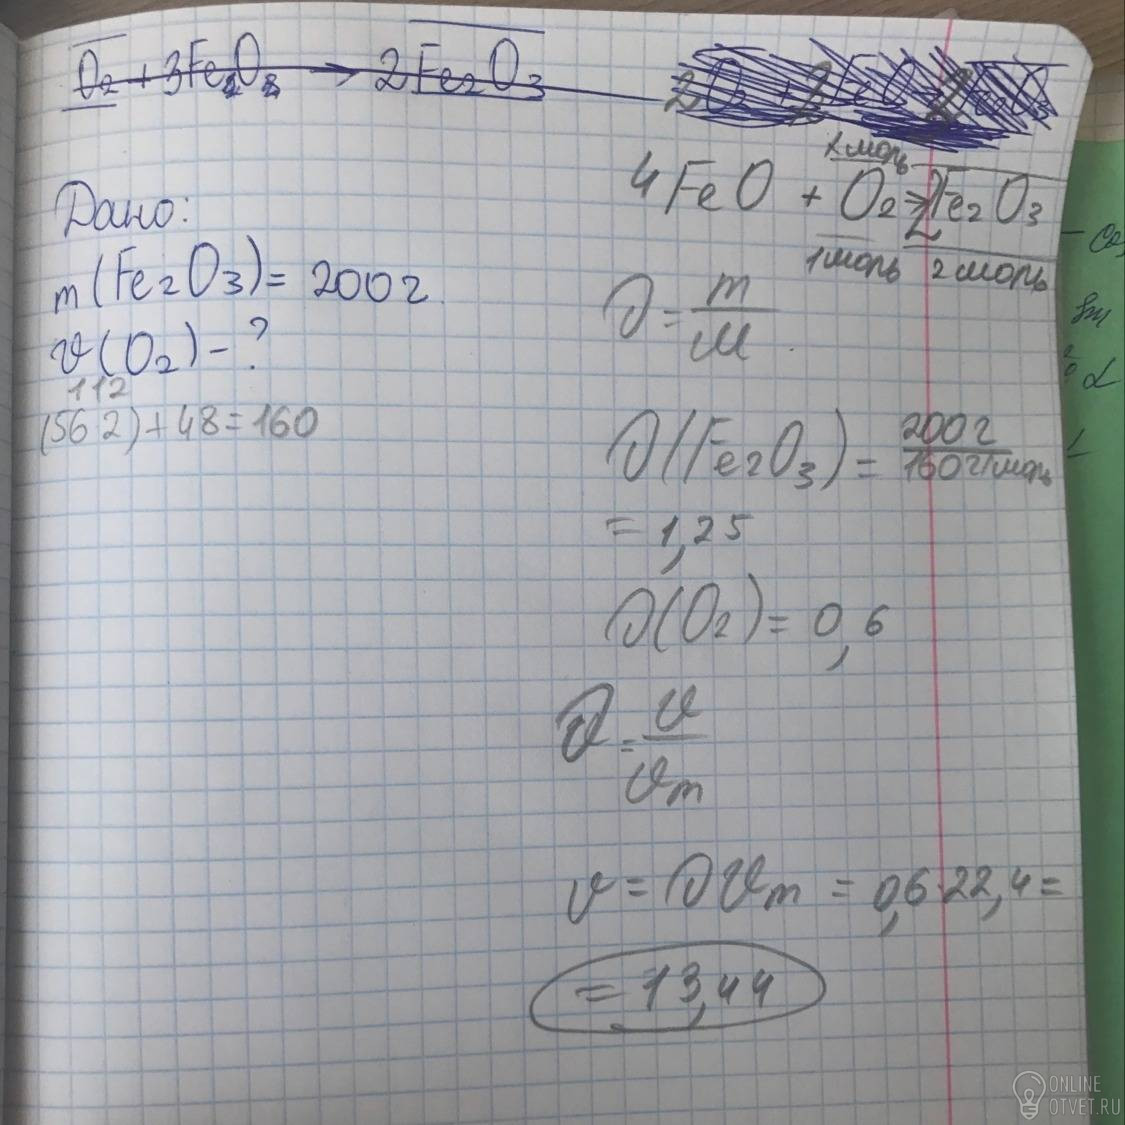 O₂ + 3Fe₂O₂ → 2Fe₂O₃
Дано:
m(Fe₂O₃) = 200г
V(O₂) - ?
112
(56·2)+48=160
x моль
4FeO + O₂ → 2Fe₂O₃
1 моль 2 моль
ν = m/M
ν(Fe₂O₃) = 200г/160г/моль
= 1,25
ν(O₂) = 0,6
ν = V/Vm
V = νVm = 0,6·22,4 =
= 13,44
ONLINE
OTVET.RU